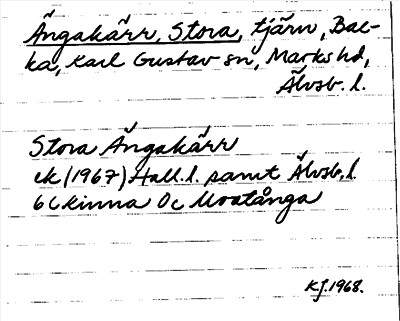 Ängakärr, Stora, tjärn, Bac-
ka, Karl Gustav sn, Marks hd,
Älvsb. l.
Stora Ängakärr
ek (1967) Hall. l. samt Älvsb. l.
6C Kinna 0c Ulvatånga
KJ. 1968.